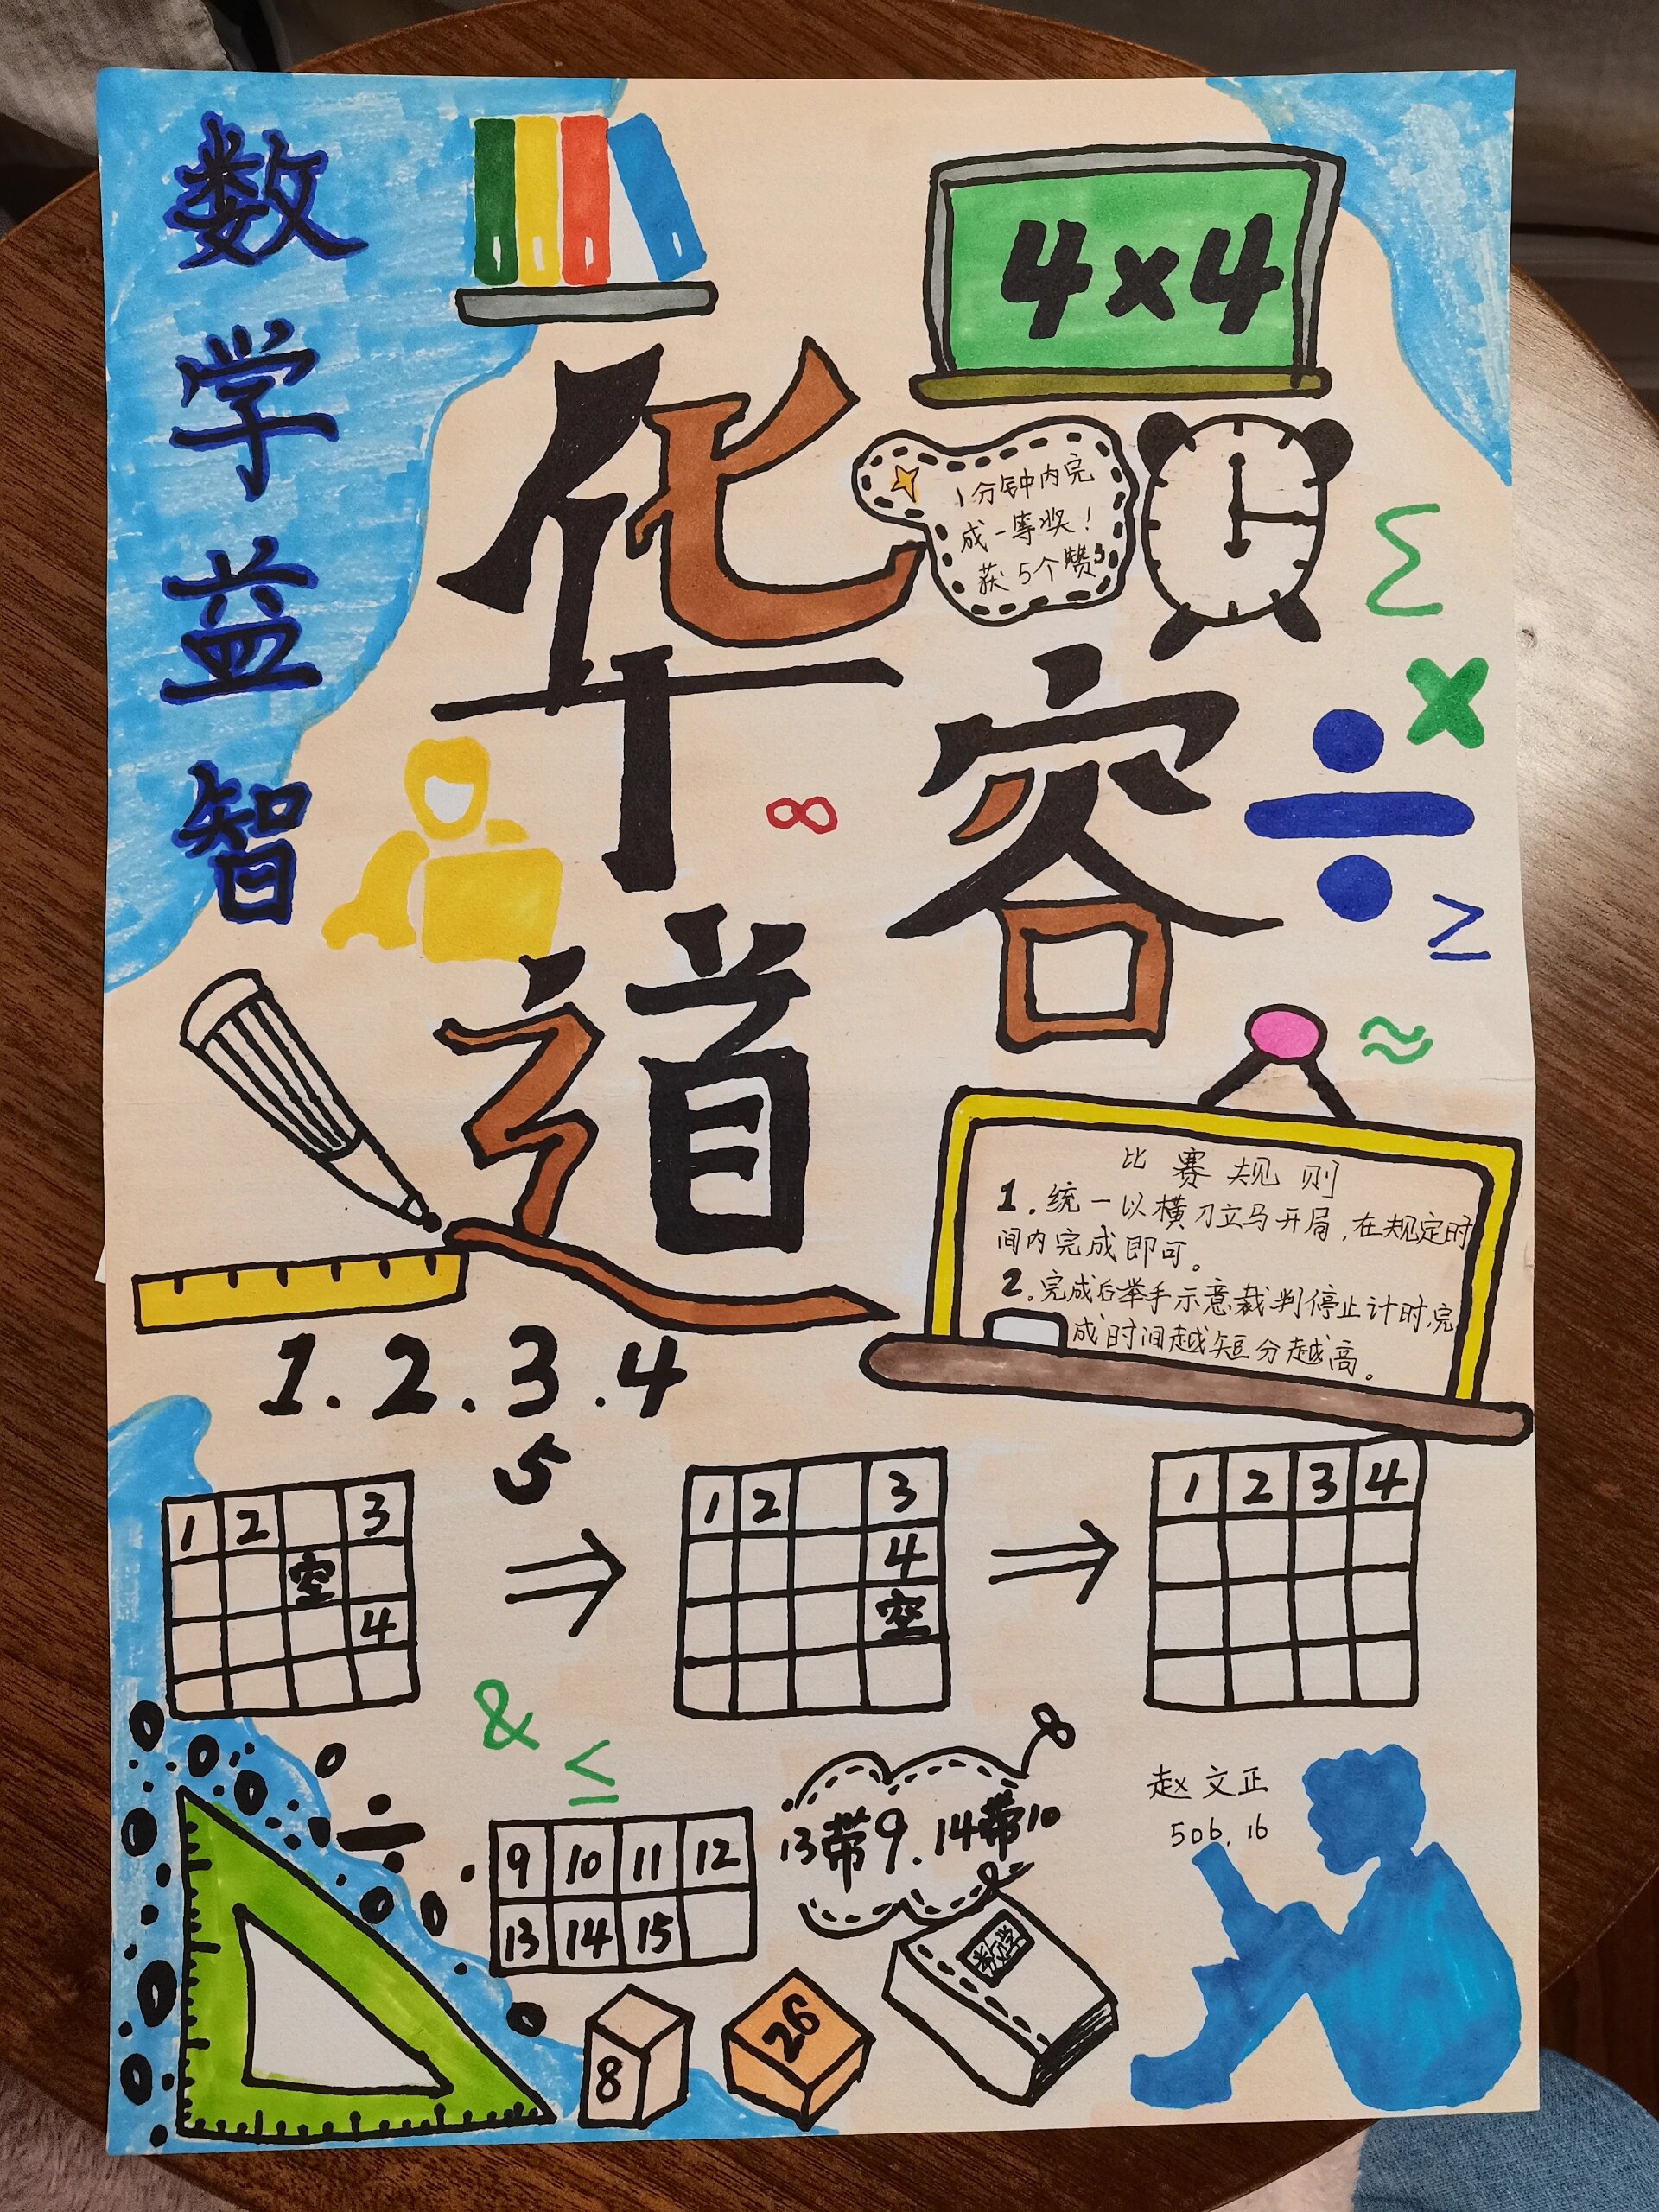 数学益智
4×4
华容道
1分钟内完
成一等奖！
获5个赞
Σ
×
÷
≥
∞
≈
比赛规则
1.统一以横刀立马开局,在规定时
间内完成即可。
2.完成后举手示意裁判停止计时,完
成时间越短分越高。
1.2.3.4
5
1 2 3
空
4
⇒
1 2 3
4
空
⇒
1 2 3 4
&
≤
÷
9 10 11 12
13 14 15
13带9.14带10
数学
8
26
赵文正
506.16